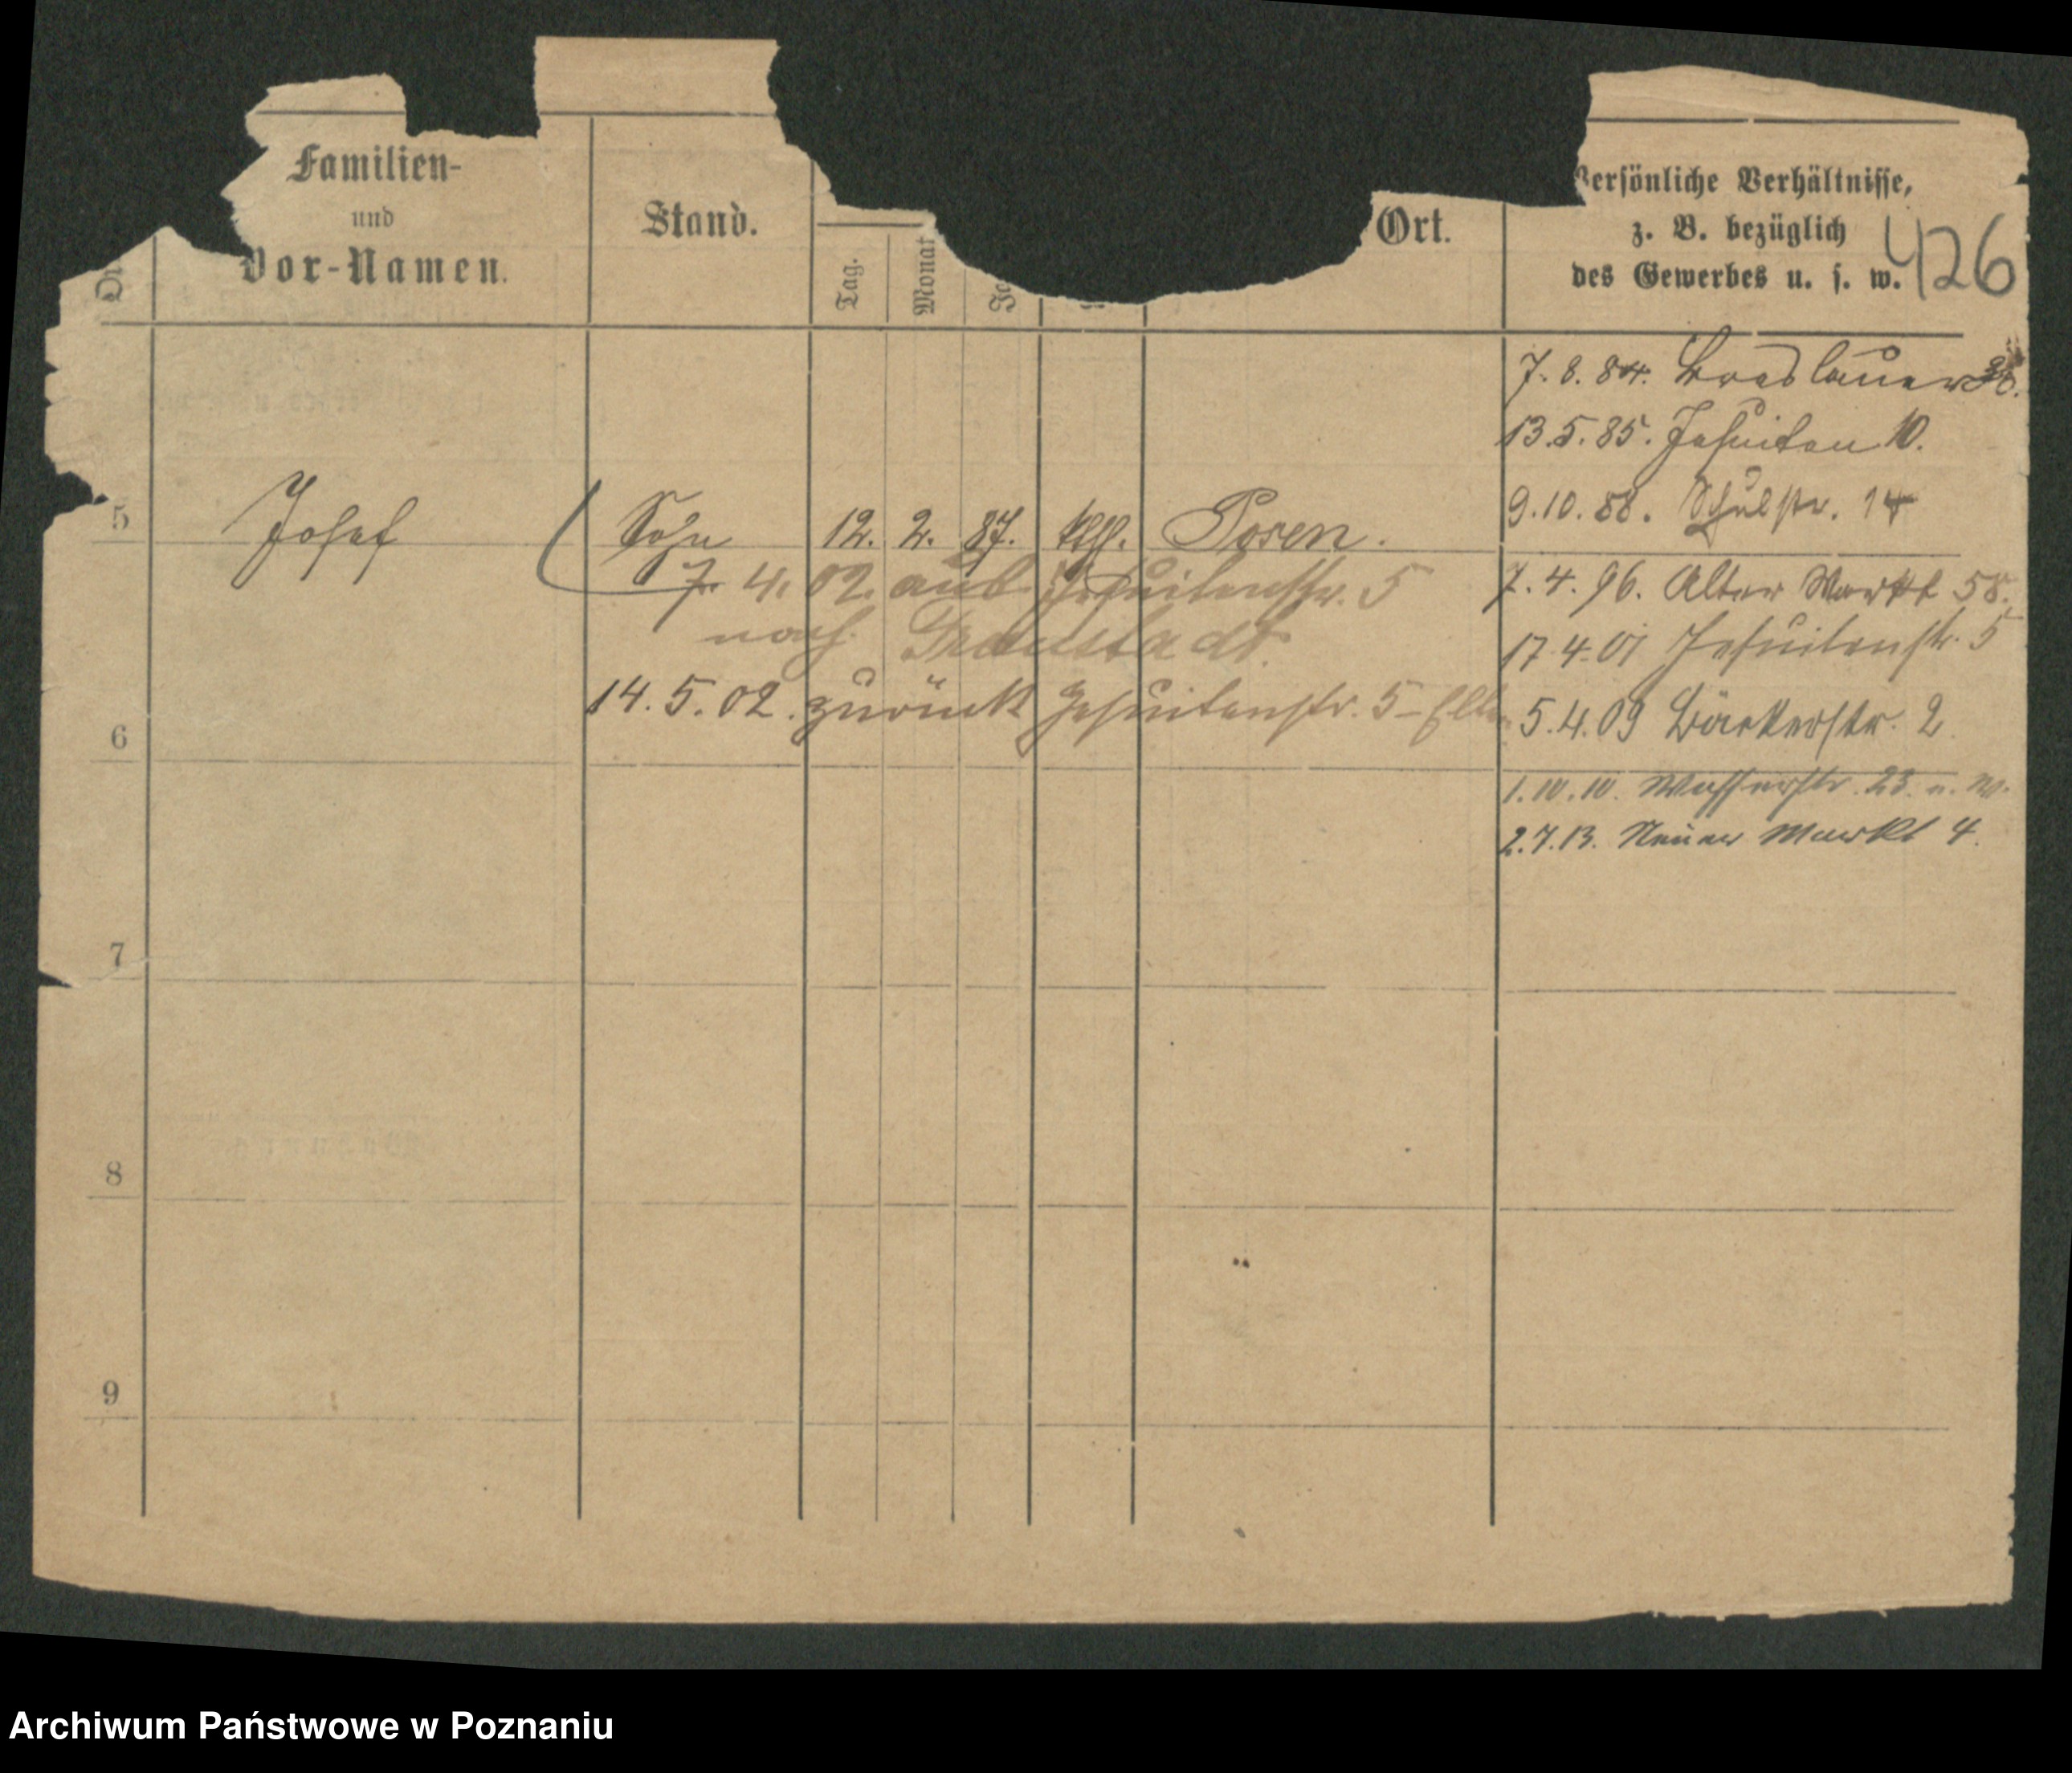 Familien-
und
Vor-Namen.
Stand.
Tag.
Monat
Ort.
Persönliche Verhältnisse,
z. B. bezüglich
des Gewerbes u. s. w.
426
7. 8. 84. Breslauer
13. 5. 85. Jesuiten 10.
9. 10. 88. Schulstr. 14
5 Josef Sohn 12. 2. 87. kth. Posen.
7. 4. 02. aus Jesuitenstr. 5
nach Fraustadt.
14. 5. 02. zurück Jesuitenstr. 5 -
7. 4. 96. Alter Markt 58.
17. 4. 01 Jesuitenstr. 5
5. 4. 09 Bäckerstr. 2
6
1. 10. 10. Wasserstr. 23.
2. 7. 13. Neuer Markt 4.
7
8
9
Archiwum Państwowe w Poznaniu